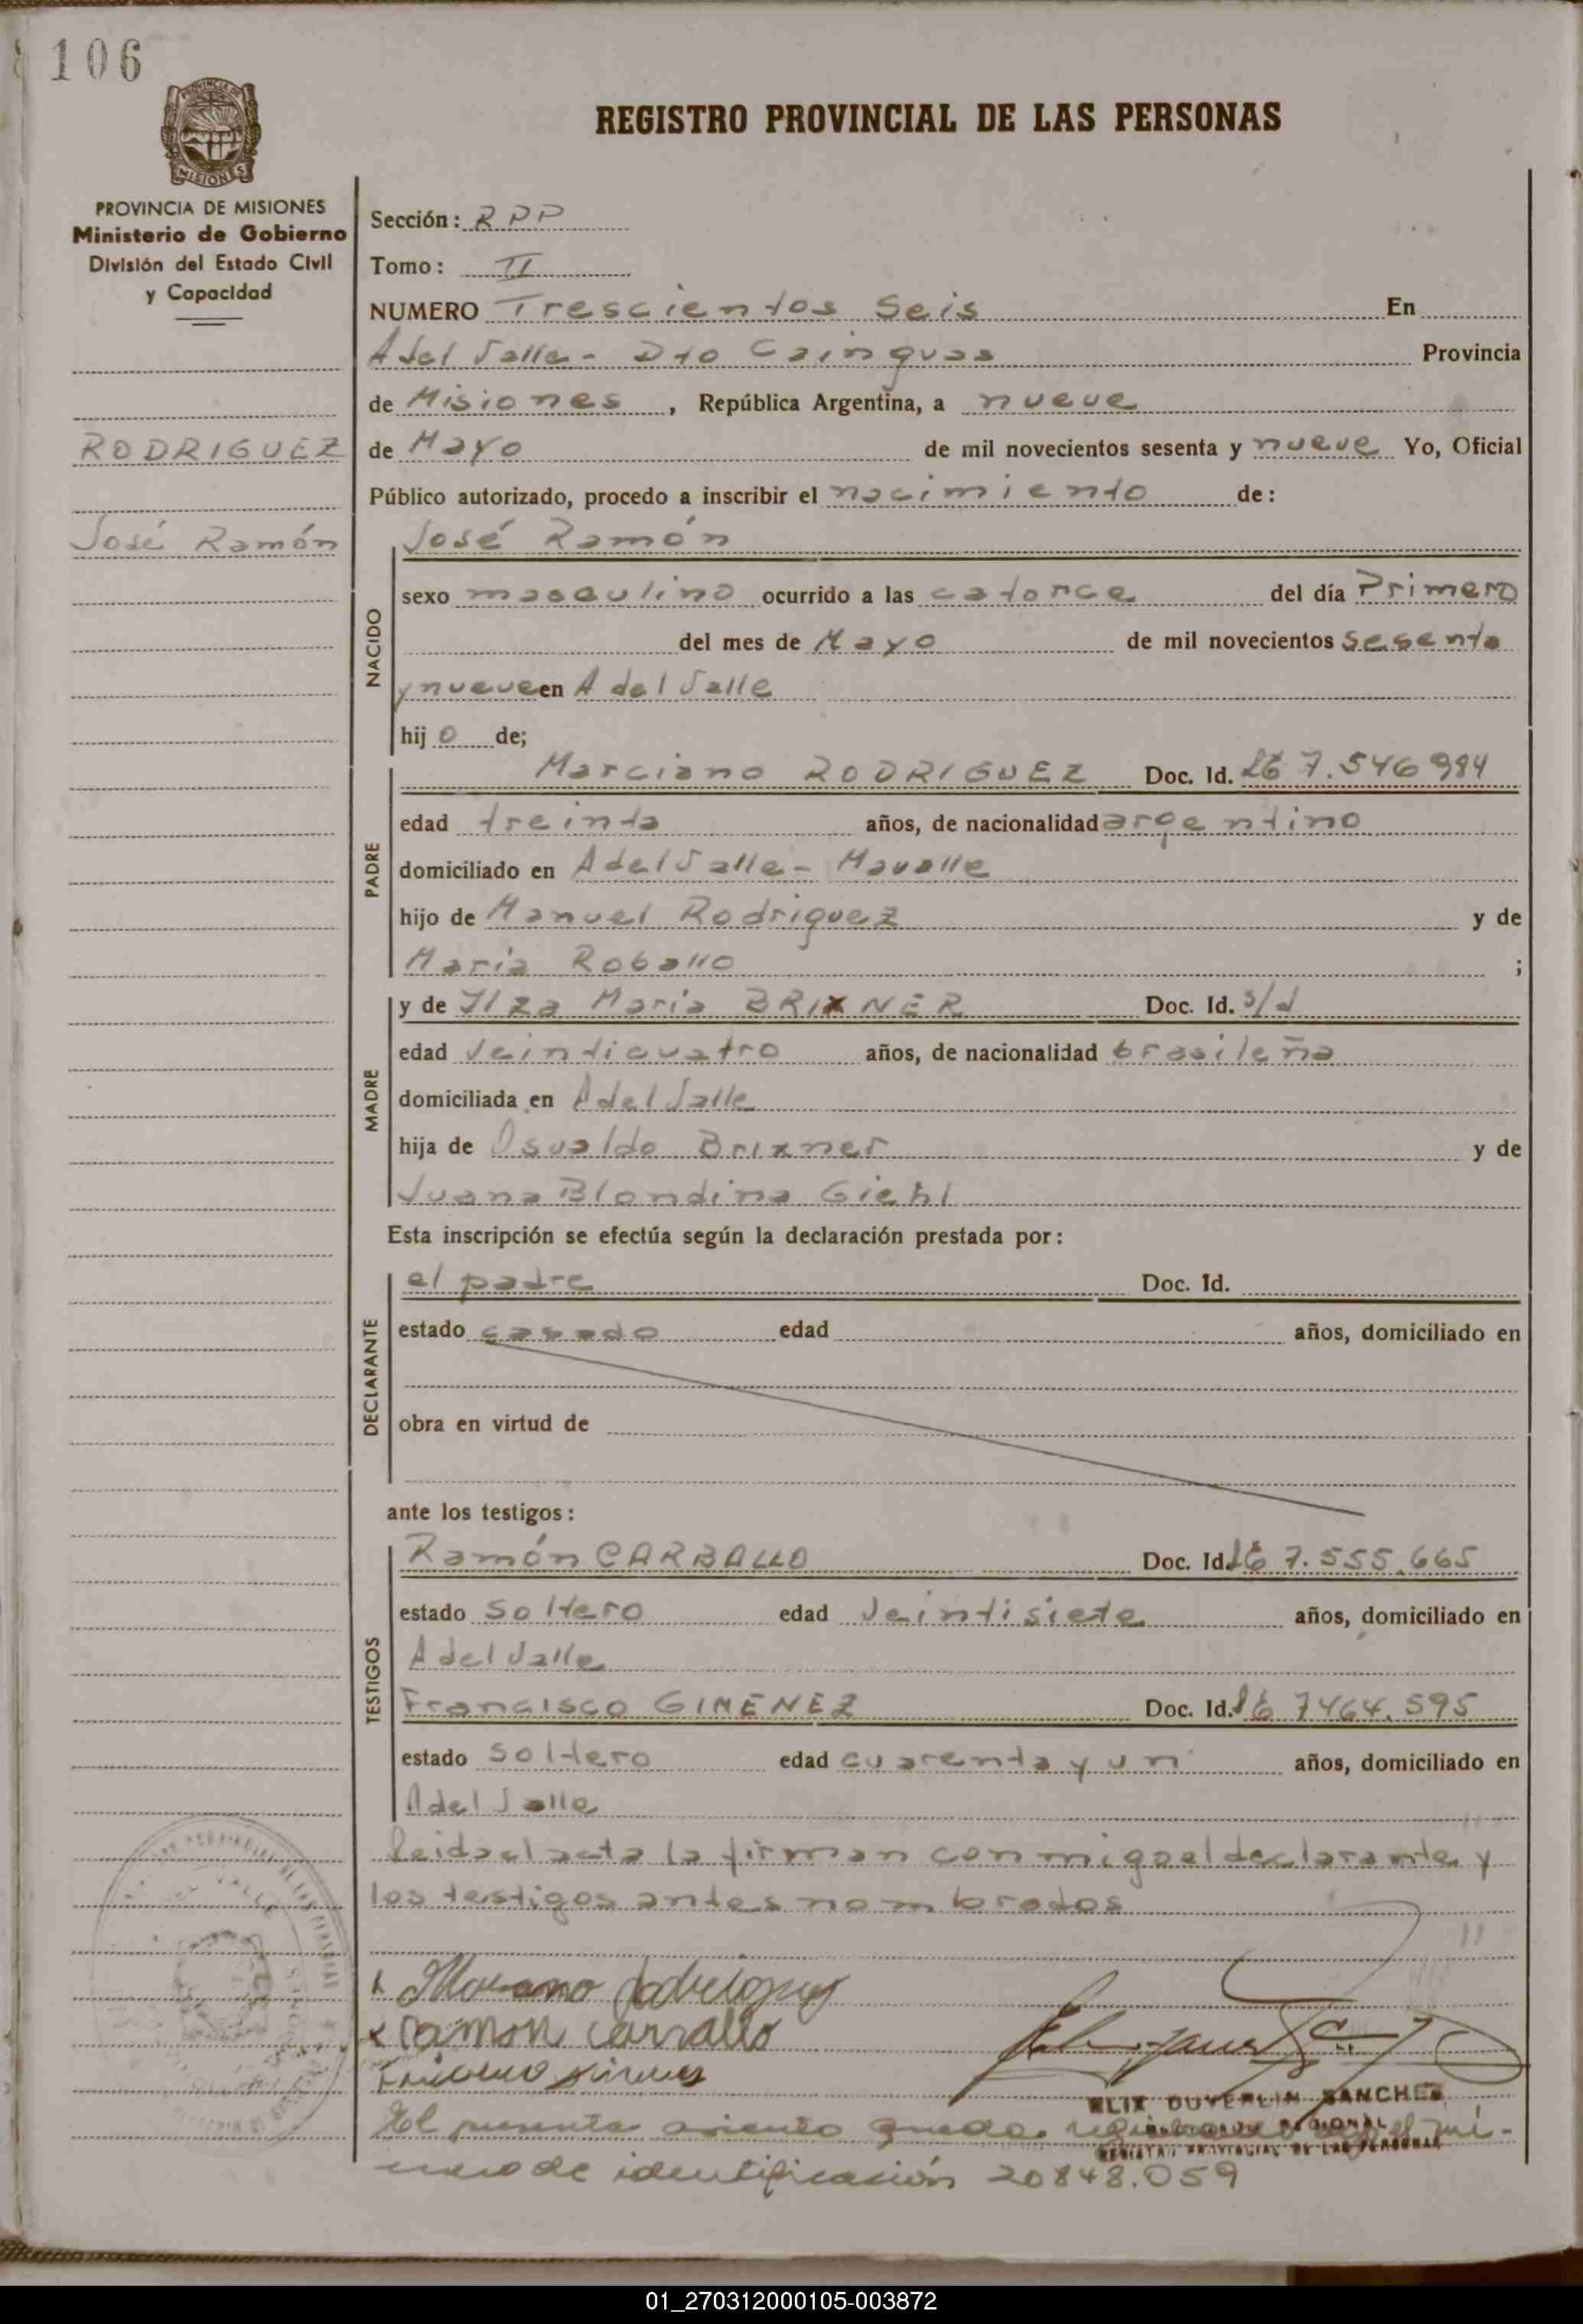 106
REGISTRO PROVINCIAL DE LAS PERSONAS
MISIONES
PROVINCIA DE MISIONES
Ministerio de Gobierno
División del Estado Civil
y Capacidad
RODRIGUEZ
José Ramón
Sección: RPP
Tomo: II
NUMERO Trescientos Seis En
A del Valle - Dto Cainguas Provincia
de Misiones, República Argentina, a nueve
de Mayo de mil novecientos sesenta y nueve Yo, Oficial
Público autorizado, procedo a inscribir el nacimiento de:
NACIDO
José Ramón
sexo masculino ocurrido a las catorce del día Primero
del mes de Mayo de mil novecientos sesenta
y nueve en A del Valle
hijo de;
PADRE
Marciano RODRIGUEZ Doc. Id. LE 7.546 984
edad treinta años, de nacionalidad argentino
domiciliado en A del Valle -
hijo de Manuel Rodriguez y de
Maria Roballo ;
MADRE
y de Ilza Maria BRIXNER Doc. Id. s/d
edad Veinticuatro años, de nacionalidad brasileña
domiciliada en A del Valle
hija de Osvaldo Brixner y de
Juana Blondina Giehl
Esta inscripción se efectúa según la declaración prestada por:
DECLARANTE
el padre Doc. Id.
estado casado edad años, domiciliado en
obra en virtud de
ante los testigos:
TESTIGOS
Ramón CARBALLO Doc. Id. LE 7.555.665
estado Soltero edad Veintisiete años, domiciliado en
A del Valle
Francisco GIMENEZ Doc. Id. LE 7464.595
estado Soltero edad cuarenta y un años, domiciliado en
A del Valle
Leida el acta la firman conmigo el declarante y
los testigos antes nombrados
Ramon Carvallo
SANCHEZ
REGIONAL
REGISTRO PROVINCIAL DE LAS PERSONAS
El presente asiento queda registrado el nú-
mero de identificación 20848.059
01_270312000105-003872